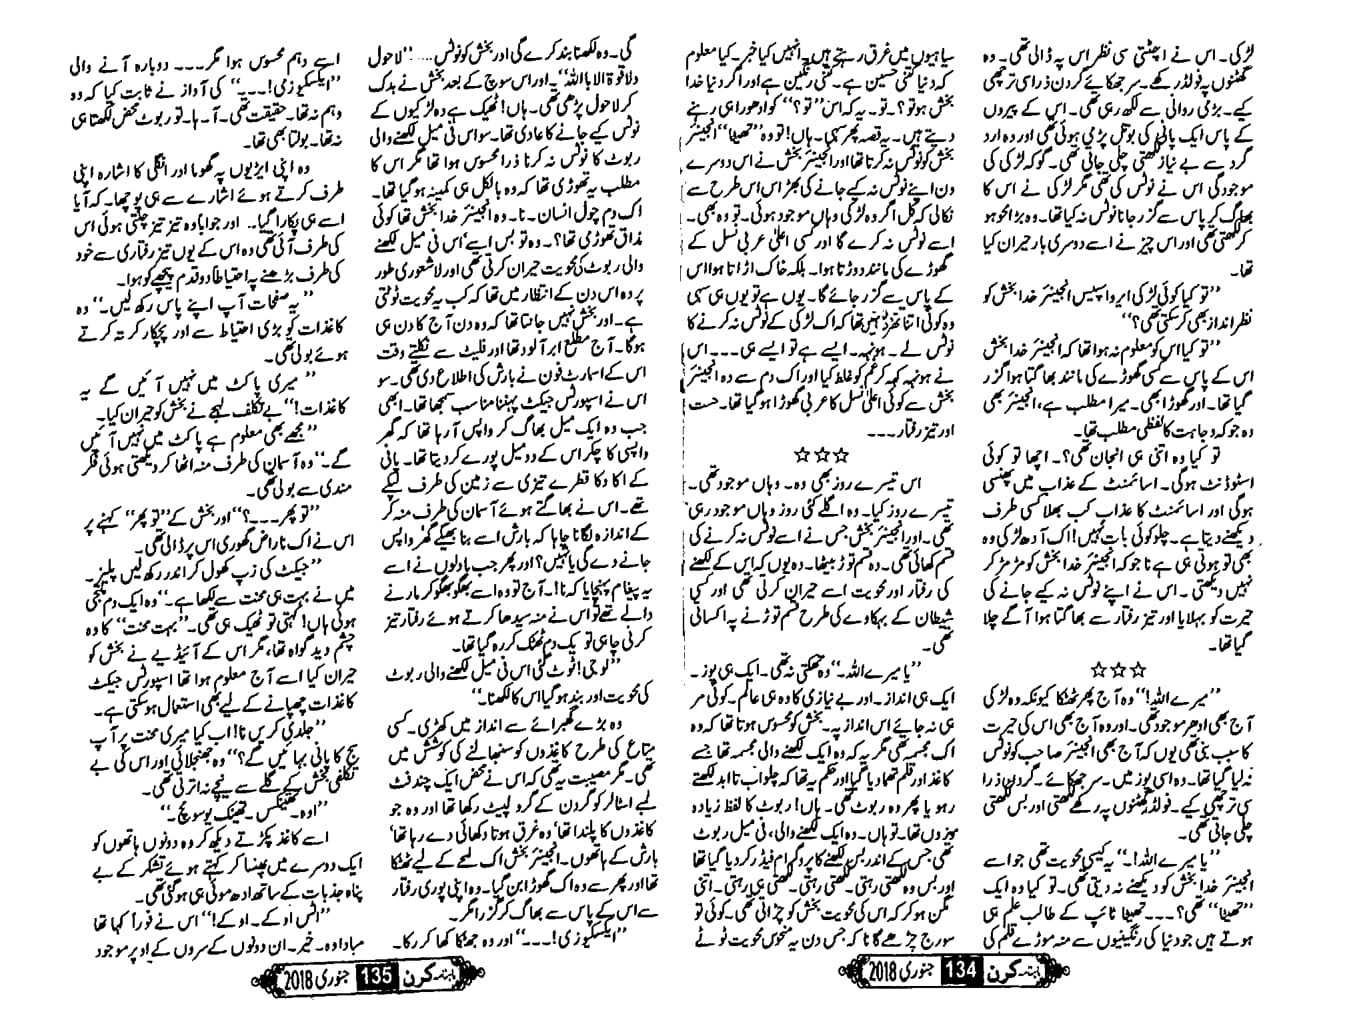 لڑکی۔ اس نے اچٹتی سی نظر اس پہ ڈالی تھی۔ وہ
گھٹنوں پہ فولڈر رکھے۔ سر جھکائے گردن ذرا سی ترچھی
کیے۔ بڑی روانی سے لکھ رہی تھی۔ اس کے پیروں
کے پاس ایک پانی کی بوتل پڑی ہوئی تھی اور وہ ارد
گرد سے بے نیاز لکھتی چلی جاتی تھی۔ گو کہ لڑکی کی
موجودگی اس نے نوٹس کی تھی مگر لڑکی نے اس کا
بھاگ کر پاس سے گزر جانا نوٹس نہ کیا تھا۔ وہ بڑا محو ہو
کر لکھتی تھی اور اس چیز نے اسے دوسری بار حیران کیا
تھا۔
”تو کیا کوئی لڑکی ایرو اسپیس انجینئر خدا بخش کو
نظر انداز بھی کر سکتی تھی؟“
”تو کیا اس کو معلوم نہ ہوا تھا کہ انجینئر خدا بخش
اس کے پاس سے کسی گھوڑے کی مانند بھاگتا ہوا گزر
گیا تھا۔ اور گھوڑا بھی۔ میرا مطلب ہے، انجینئر بھی
وہ جو کہ وجاہت کا لفظی مطلب تھا۔
تو کیا وہ اتنی ہی انجان تھی؟۔ اچھا تو کوئی
اسٹوڈنٹ ہوگی۔ اسائمنٹ کے عذاب میں پھنسی
ہوگی اور اسائمنٹ کا عذاب کب بھلا کسی طرف
دیکھنے دیتا ہے۔ چلو کوئی بات نہیں! اک آدھ لڑکی وہ
بھی تو ہوتی ہی ہے نا جو کہ انجینئر خدا بخش کو مڑ مڑ کر
نہیں دیکھتی۔ اس نے اپنے نوٹس نہ کیے جانے کی
حیرت کو بہلایا اور تیز رفتار سے بھاگتا ہوا آگے چلا
گیا تھا۔
☆☆☆
”میرے اللہ!“ وہ آج پھر ٹھٹکا کیونکہ وہ لڑکی
آج بھی ادھر موجود تھی۔ اور وہ آج بھی اس کی حیرت
کا سبب بنی تھی یوں کہ آج بھی انجینئر صاحب کو نوٹس
نہ لیا گیا تھا۔ وہ اسی پوز میں۔ سر جھکائے۔ گردن ذرا
سی ترچھی کیے۔ فولڈر گھٹنوں پہ رکھے لکھتی اور بس لکھتی
چلی جاتی تھی۔
”یا میرے اللہ!۔“ یہ کیسی محویت تھی جو اسے
انجینئر خدا بخش کو دیکھنے نہ دیتی تھی۔ تو کیا وہ ایک
”ٹھیٹا“ تھی؟۔۔۔ ٹھیٹا ٹائپ کے طالب علم ہی
ہوتے ہیں جو دنیا کی رنگینیوں سے منہ موڑے قلم کی
سیاہیوں میں غرق رہتے ہیں۔ انہیں کیا خبر۔ کیا معلوم
کہ دنیا کتنی حسین ہے۔ کتنی رنگین ہے اور اگر دنیا خدا
بخش ہو تو؟۔ تو۔ یہ کہ اس ”تو؟“ کو ادھورا ہی رہنے
دیتے ہیں۔ یہ قصہ پھر سہی۔ ہاں! تو وہ ”ٹھیٹا“ انجینئر
بخش کو نوٹس نہ کرتا تھا اور انجینئر بخش نے اس دوسرے
دن اپنے نوٹس نہ کیے جانے کی بھڑاس اس طرح سے
نکالی کہ کل اگر وہ لڑکی وہاں موجود ہوئی۔ تو وہ بھی۔
اسے نوٹس نہ کرے گا اور کسی اعلیٰ عربی نسل کے
گھوڑے کی مانند دوڑتا ہوا۔ بلکہ خاک اڑاتا ہوا اس
کے پاس سے گزر جائے گا۔ یوں ہے تو یوں ہی سہی
وہ کوئی اتنا تھرڈ نہیں تھا کہ اک لڑکی کے نوٹس نہ کرنے کا
نوٹس لے۔ ہونہہ۔ ایسے ہے تو ایسے ہی۔۔۔ اس
نے ہونہہ کہہ کر غم کو غلط کیا اور اک دم سے وہ انجینئر
بخش سے کوئی اعلیٰ نسل کا عربی گھوڑا ہو گیا تھا۔ چست
اور تیز رفتار۔۔۔
☆☆☆
اس تیسرے روز بھی وہ۔ وہاں موجود تھی۔
تیسرے روز کیا۔ وہ اگلے کئی روز وہاں موجود رہی
تھی۔ اور انجینئر بخش جس نے اسے نوٹس نہ کرنے کی
قسم کھائی تھی۔ وہ قسم توڑ بیٹھا۔ وہ یوں کہ اس کے لکھنے
کی رفتار اور محویت اسے حیران کرتی تھی اور کسی
شیطان کے بہکاوے کی طرح قسم توڑنے پہ اکساتی
تھی۔
”یا میرے اللہ۔“ وہ تھکتی نہ تھی۔ ایک ہی پوز۔
ایک ہی انداز۔ اور بے نیازی کا وہ ہی عالم۔ کوئی مر
ہی نہ جائے اس انداز پہ۔ بخش کو محسوس ہوتا تھا کہ وہ
اک مجسمہ تھی مگر یہ کہ وہ ایک لکھنے والی مجسمہ تھا جسے
کاغذ اور قلم تھما دیا گیا اور حکم یہ تھا کہ چلو اب تا ابد لکھتے
رہو یا پھر وہ ربوٹ تھی۔ ہاں! ربوٹ کا لفظ زیادہ
موزوں تھا۔ تو ہاں۔ وہ ایک لکھنے والی، فی میل ربوٹ
تھی جس کے اندر بس لکھنے کا پروگرام فیڈ کر دیا گیا تھا
اور بس وہ لکھتی رہتی۔ لکھتی رہتی۔ لکھتی ہی رہتی۔ اتنی
مگن ہو کر کہ اس کی محویت بخش کو چڑاتی تھی۔ کوئی تو
سورج چڑھے گا نا کہ جس دن یہ منحوس محویت ٹوٹے
ماہنامہ کرن 134 جنوری 2018
گی۔ وہ لکھنا بند کرے گی اور بخش کو نوٹس.... ”لاحول
ولا قوۃ الا باللہ“۔ اور اس سوچ کے بعد بخش نے بدک
کر لاحول پڑھی تھی۔ ہاں! ٹھیک ہے وہ لڑکیوں کے
نوٹس کیے جانے کا عادی تھا۔ سو اس فی میل لکھنے والی
ربوٹ کا نوٹس نہ کرنا ذرا محسوس ہوا تھا مگر اس کا
مطلب یہ تھوڑی تھا کہ وہ بالکل ہی کمینہ ہو گیا تھا۔
اک دم چول انسان۔ نا۔ وہ انجینئر خدا بخش تھا کوئی
مذاق تھوڑی تھا؟۔ وہ تو بس اسے ’اس فی میل لکھنے
والی ربوٹ کی محویت حیران کرتی تھی اور لاشعوری طور
پر وہ اس دن کے انتظار میں تھا کہ کب یہ محویت ٹوٹتی
ہے۔ اور بخش نہیں جانتا تھا کہ وہ دن آج کا دن ہی
ہوگا۔ آج مطلع ابر آلود تھا اور فلیٹ سے نکلتے وقت
اس کے اسمارٹ فون نے بارش کی اطلاع دی تھی۔ سو
اس نے اسپورٹس جیکٹ پہننا مناسب سمجھا تھا۔ ابھی
جب وہ ایک میل بھاگ کر واپس آ رہا تھا کہ گھر
واپسی کا چکر اس کے دو میل پورے کر دیتا تھا۔ پانی
کے اکا دکا قطرے تیزی سے زمین کی طرف لپکے
تھے۔ اس نے بھاگتے ہوئے آسمان کی طرف منہ کر
کے اندازہ لگانا چاہا کہ بارش اسے بنا بھیگے گھر واپس
جانے دے گی یا نہیں؟ اور پھر جب بادلوں نے اسے
یہ پیغام پہنچایا کہ نا!۔ آج تو وہ اسے بھگو بھگو کر مارنے
والے تھے تو اس نے منہ سیدھا کرتے ہوئے رفتار تیز
کرنی چاہی تو یک دم ٹھٹک کر رہ گیا تھا۔
”لو جی! ٹوٹ گئی اس فی میل لکھنے والی ربوٹ
کی محویت اور بند ہو گیا اس کا لکھنا۔“
وہ بڑے گھبرائے سے انداز میں کھڑی۔ کسی
متاع کی طرح کاغذوں کو سنبھالنے کی کوشش میں
تھی۔ مگر مصیبت یہ تھی کہ اس نے محض ایک چند فٹ
لمبے اسٹالر کو گردن کے گرد لپیٹ رکھا تھا اور وہ جو
کاغذوں کا پلندا تھا ’وہ غرق ہوتا دکھائی دے رہا تھا‘
بارش کے ہاتھوں۔ انجینئر بخش اک لمحے کے لیے ٹھٹکا
تھا اور پھر سے وہ اک گھوڑا بن گیا۔ وہ اپنی پوری رفتار
سے اس کے پاس سے بھاگ کر گزرا مگر۔
”ایکسکیوزی!۔۔۔“ اور وہ جھٹکا کھا کر رکا۔
اسے وہم محسوس ہوا مگر۔۔۔ دوبارہ آنے والی
”ایکسکیوزی!۔۔۔“ کی آواز نے ثابت کیا کہ وہ
وہم نہ تھا۔ حقیقت تھی۔ آ۔ ہا۔ تو ربوٹ محض لکھتا ہی
نہ تھا۔ بولتا بھی تھا۔
وہ اپنی ایڑیوں پہ گھوما اور انگلی کا اشارہ اپنی
طرف کرتے ہوئے اشارے سے ہی پوچھا۔ کہ آیا
اسے ہی پکارا گیا۔ اور جوابا وہ تیز تیز چلتی ہوئی اس
کی طرف آئی تھی وہ اس کے یوں تیز رفتاری سے خود
کی طرف بڑھنے پہ احتیاطا دو قدم پیچھے کو ہوا۔
”یہ صفحات آپ اپنے پاس رکھ لیں۔“ وہ
کاغذات کو بڑی احتیاط سے اور پچکار کر تہ کرتے
ہوئے بولی تھی۔
”میری پاکٹ میں نہیں آئیں گے یہ
کاغذات!“ بے تکلف لہجے نے بخش کو حیران کیا۔
”مجھے بھی معلوم ہے پاکٹ میں نہیں آئیں
گے۔“ وہ آسمان کی طرف منہ اٹھا کر دیکھتی ہوئی فکر
مندی سے بولی تھی۔
”تو پھر۔۔۔؟“ اور بخش کے ”تو پھر“ کہنے پر
اس نے اک ناراض گھوری اس پر ڈالی تھی۔
”جیکٹ کی زپ کھول کر اندر رکھ لیں پلیز۔
میں نے بہت ہی محنت سے لکھا ہے۔“ وہ ایک دم بجھی
ہوئی ہاں! کہتی تو ٹھیک ہی تھی۔ ”بہت محنت“ کا وہ
چشم دید گواہ تھا، مگر اس کے آئیڈیے نے بخش کو
حیران کیا اسے آج معلوم ہوا تھا اسپورٹس جیکٹ
کاغذات چھپانے کے لیے بھی استعمال ہو سکتی ہے۔
”جلدی کریں نا! اب کیا میری محنت پر آپ
سچ کا پانی بہائیں گے؟“ وہ جھنجلائی اور اس کی بے
تکلفی بخش کے گلے سے نیچے نہ اترتی تھی۔
”اوہ۔ تھینکس۔ تھینک یو سوچ۔“
اسے کاغذ پکڑتے دیکھ کر وہ دونوں ہاتھوں کو
ایک دوسرے میں پھنسا کر کہتے ہوئے تشکر کے بے
پناہ جذبات کے ساتھ ادھ موئی ہی ہو گئی تھی۔
”اٹس اوکے۔ اوکے!“ اس نے فوراً کہا تھا
مبادا وہ۔ خیر۔ ان دونوں کے سروں کے اوپر موجود
ماہنامہ کرن 135 جنوری 2018